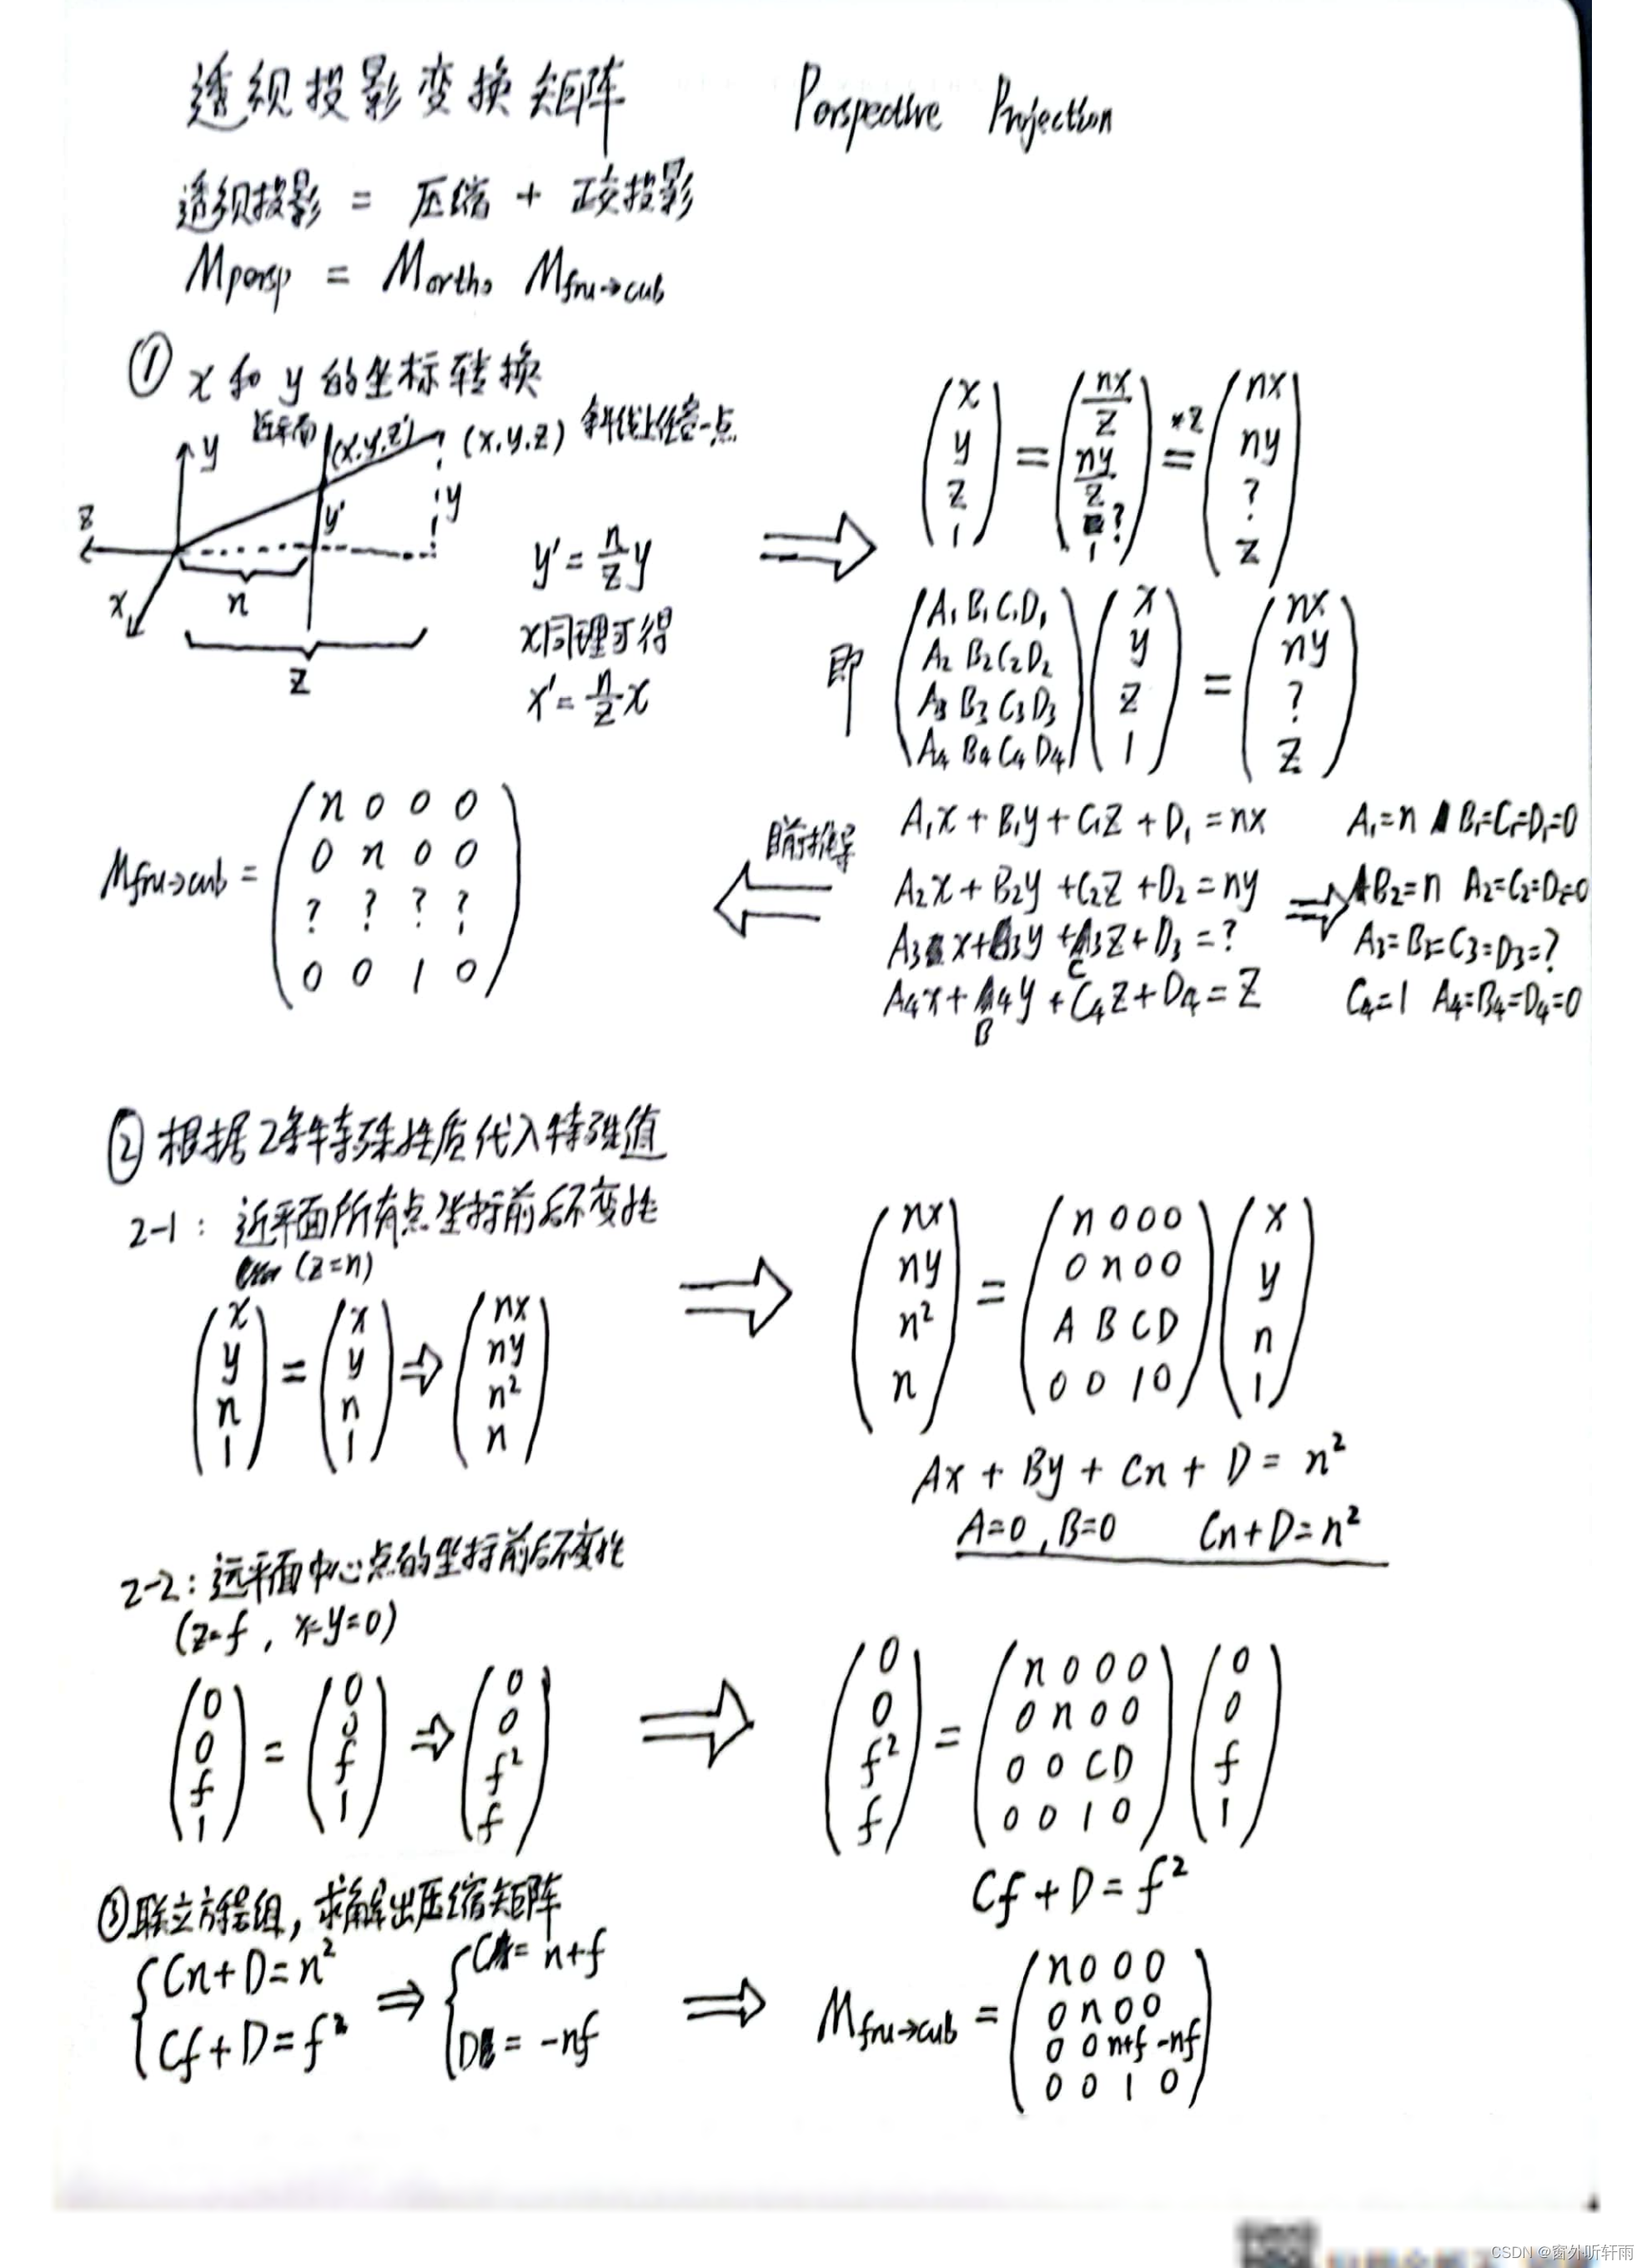 透视投影变换矩阵 Porspective Projection
透视投影 = 压缩 + 正交投影
Mporsp = Mortho Mfru→cub
① x 和 y 的坐标转换
近平面 (x',y',z') (x,y,z) 斜线上任意一点
y
y' y
z
x n
z
y' = n/z y
x同理可得
x' = n/z x
⇒
(x y z 1) = (nx/z ny/z ? 1) *z= (nx ny ? z)
即 (A₁ B₁ C₁ D₁
A₂ B₂ C₂ D₂
A₃ B₃ C₃ D₃
A₄ B₄ C₄ D₄) (x y z 1) = (nx ny ? z)
A₁x + B₁y + C₁z + D₁ = nx A₁=n B₁=C₁=D₁=0
A₂x + B₂y + C₂z + D₂ = ny ⇒ B₂=n A₂=C₂=D₂=0
A₃x + B₃y + C₃z + D₃ = ? A₃=B₃=C₃=D₃=?
A₄x + B₄y + C₄z + D₄ = z C₄=1 A₄=B₄=D₄=0
目前推导 ⇐
Mfru→cub = (n 0 0 0
0 n 0 0
? ? ? ?
0 0 1 0)
② 根据2条特殊性质代入特殊值
2-1: 近平面所有点坐标前后不变性
(z=n)
(x y n 1) = (x y n 1) ⇒ (nx ny n² n) ⇒ (nx ny n² n) = (n 0 0 0
0 n 0 0
A B C D
0 0 1 0) (x y n 1)
Ax + By + Cn + D = n²
A=0, B=0 Cn+D=n²
2-2: 远平面中心点的坐标前后不变性
(z=f, x=y=0)
(0 0 f 1) = (0 0 f 1) ⇒ (0 0 f² f) ⇒ (0 0 f² f) = (n 0 0 0
0 n 0 0
0 0 C D
0 0 1 0) (0 0 f 1)
Cf + D = f²
③ 联立方程组, 求解出压缩矩阵
{Cn+D=n² ⇒ {C = n+f
Cf+D=f² D = -nf
⇒ Mfru→cub = (n 0 0 0
0 n 0 0
0 0 n+f -nf
0 0 1 0)
CSDN @窗外听轩雨